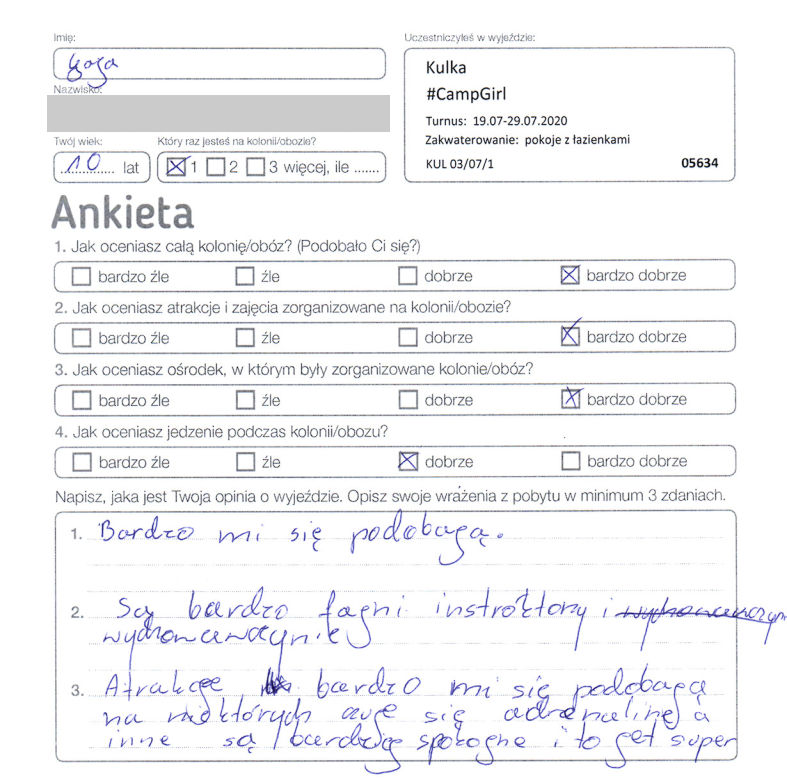 Imię:
Uczestniczyłeś w wyjeździe:
Kulka
#CampGirl
Turnus: 19.07-29.07.2020
Zakwaterowanie: pokoje z łazienkami
KUL 03/07/1 05634
Nazwisko:
Twój wiek: Który raz jesteś na kolonii/obozie?
10 lat 1 2 3 więcej, ile .......
Ankieta
1. Jak oceniasz całą kolonię/obóz? (Podobało Ci się?)
bardzo źle źle dobrze bardzo dobrze
2. Jak oceniasz atrakcje i zajęcia zorganizowane na kolonii/obozie?
bardzo źle źle dobrze bardzo dobrze
3. Jak oceniasz ośrodek, w którym były zorganizowane kolonie/obóz?
bardzo źle źle dobrze bardzo dobrze
4. Jak oceniasz jedzenie podczas kolonii/obozu?
bardzo źle źle dobrze bardzo dobrze
Napisz, jaka jest Twoja opinia o wyjeździe. Opisz swoje wrażenia z pobytu w minimum 3 zdaniach.
1. Bardzo mi się podobagą.
2. Są bardzo fagni instroktorzy i
3. Atrakcge bardzo mi się podobagą
na niektórych cuge się adrenalinę a
inne są bardzo spokogne i to gest super